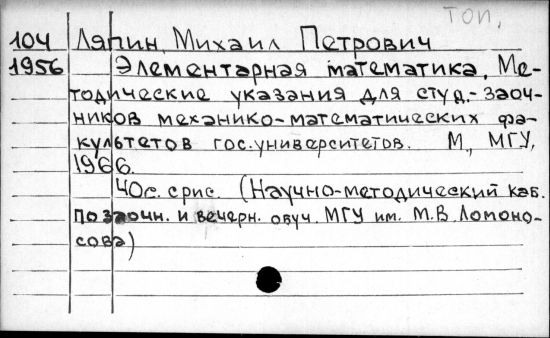 топ.
104 Ляпин, Михаил Петрович
1956 Элементарная математика. Ме-
тодические указания для студ.-заоч-
ников механико-математических фа-
культетов гос.университетов. М., МГУ,
1966.
40с. с рис. (Научно-методический каб.
по заочн. и вечерн. обуч. МГУ им. М.В. Ломоно-
сова)